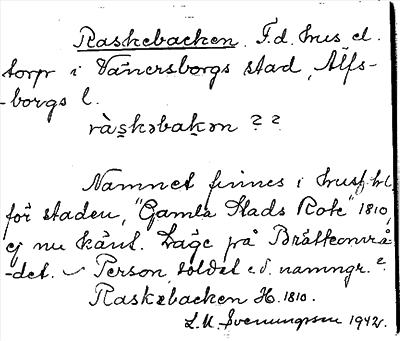 Raskebacken. F.d. hus el.
torp i Vänersborgs stad, Älfs-
-borgs l.
ràskəbakən ? ?
Namnet finnes i husf. hl.
för staden, "Gamla Stads Rote" 1810,
ej nu känt. Läge på Brätteområ-
-det. Person, soldat e.d. namngr.?
Raskebacken H. 1810.
L. M. Svenungsson 1942.